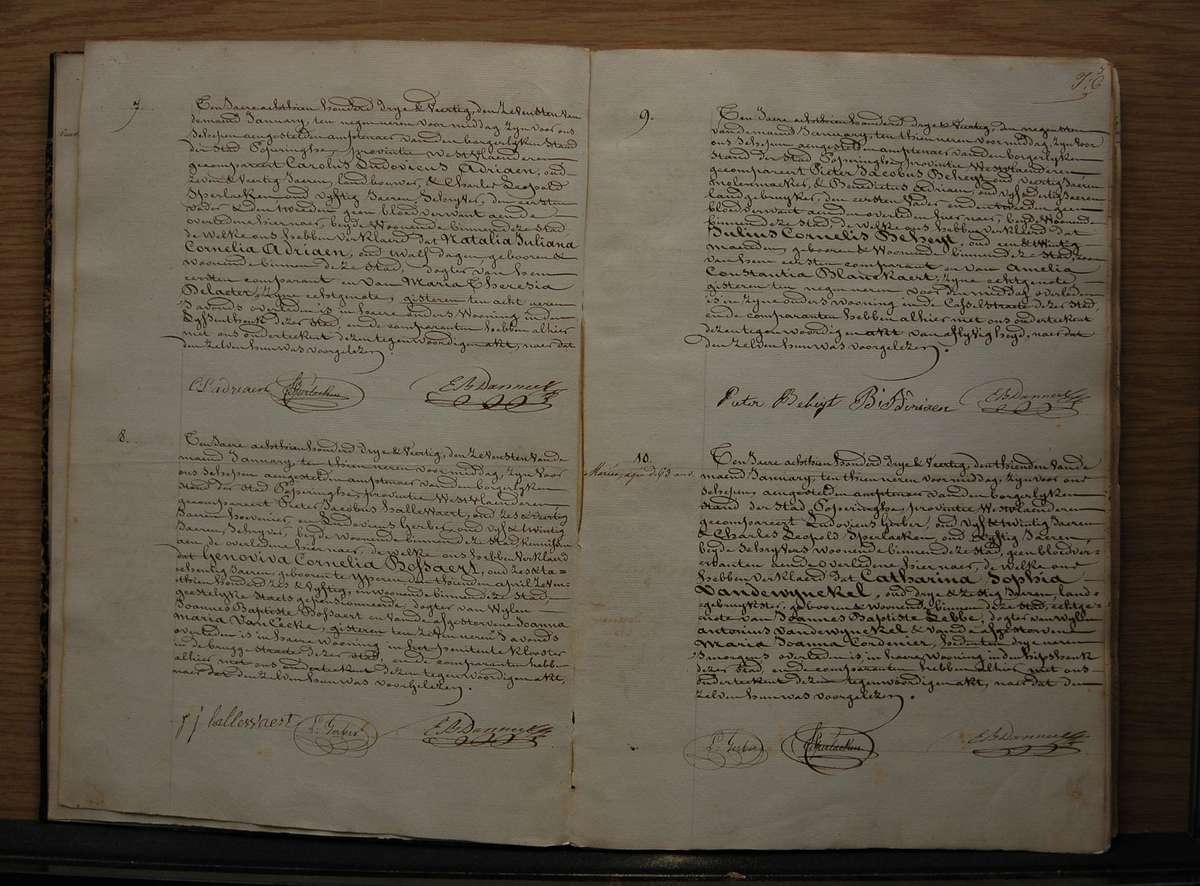 7
Ten Jaere achthien honderd drye & Veertig, den Zevensten van
de maend January, ten negen uren voor middag Zyn voor ons
Schepen aengesteld en amptenaer van den borgerlyken Stand
der Stad Poperinghe, provintie Westvlaenderen
gecompareert Carolus Ludovicus Adriaen, oud
Zeven & Veertig Jaeren, landbouwer, & Charles Leopold
Sperlaeken oud Vyftig Jaeren, Schryver, den eersten
vader & den tweeden geen bloedverwant aen de
overledene hier naer, beyde Woonende binnen deze Stad
de Welke ons hebben Verklaerd dat Natalia Juliana
Cornelia Adriaen, oud twalf dagen, gebooren &
woonende binnen deze Stad, dogter van hem
eersten comparant en van Maria Theresia
Delaeter, Zyne echtgenote, gisteren ten acht uren
S'avonds overleden is in haere ouders Wooning in den
dezer Stad, en de comparanten hebben alhier
met ons onderteekent dezen tegenwoordigen akt, naer dat
den zelven hun was voorgelezen
C L adriaen Sperlaeken E B Danneel
8.
Ten Jaere achthien honderd drye & Veertig, den Zevensten van de
maend January, ten thien uren voor middag, Zyn voor
ons Schepen aengesteld en amptenaer van den borgerlyken
Stand der Stad Poperinghe, provintie Westvlaenderen
gecompareert Pieter Jacobus hallewaert, oud Zes & veertig
Jaeren hovenier, en Ludovicus Gerber, oud vyf & twintig
Jaeren, Schryver, beyde woonende binnen deze Stad kennissen
aen de overledene hier naer, de welke ons hebben verklaerd
dat Genoviva Cornelia Bossaert, oud Zes & ta-
chentig Jaeren geboren te Ypren, den thienden april Zeven-
thien honderd Zes & Vyftig, en woonende binnen deze Stad,
geestelyke Staets gepensionneerde, dogter van Wylen
Joannes Baptiste Bossaert en van de afgestorvene Joanna
Maria Van Cecke, gisteren ten Zeven uren S'avonds
overleden is in haere wooning in het penitente klooster
in de brugge straete dezer Stad, en de comparanten hebben
alhier met ons onderteekent dezen tegenwoordigen akt,
naer dat den zelven hun was voorgelezen.
P J hallewaert L. Gerber E B Danneel
9.
Ten Jaere achthien honderd drye & Veertig, den negensten
van de maend January, ten thien uren voor middag, Zyn voor
ons Schepen aengesteld en amptenaer van den borgerlyken
Stand der Stad Poperinghe, provintie Westvlaenderen
gecompareert Pieter Jacobus Beheyt, oud Veertig Jaeren
molenmaeker, & Benedictus Adriaen, oud vyf & dertig Jaeren
landgebruyker, den eersten Vader en den tweeden geen
bloedverwant aen den overleden hier naer, beyde Woonende
binnen deze Stad, de welke ons hebben verklaerd dat
Julius Cornelis Beheyt, oud een & twintig
maenden, gebooren & Woonende binnen deze Stad, zoon
van hem eersten comparant en van Amelia
Constantia Planckaert, Zyne echtgenote,
gisteren ten negen uren voor de middag overleden
is in Zyne ouders wooning in de Casselstraete dezer Stad,
en de comparanten hebben alhier met ons onderteekent
dezen tegenwoordigen akt van aflyvigheyd, naer dat
den zelven hun was voorgelezen.
Pieter Beheyt B: Adriaen E B Danneel
10.
Ten Jaere achthien honderd drye & Veertig, den thienden van de
maend January, ten thien uren voor middag, Zyn voor ons
Schepen, aengesteld en amptenaer van den borgerlyken
Stand der Stad Poperinghe, provintie Westvlaenderen
gecompareert Ludovicus Gerber, oud Vyf & twintig Jaeren
& Charles Leopold Sperlaeken, oud Vyftig Jaeren,
beyde Schryvers woonende binnen deze Stad, geen bloedver-
wanten aen de overledene hier naer, de welke ons
hebben Verklaerd dat Catharina Sophia
Vandewynckel, oud drye & Zestig Jaeren, land-
gebruykster, gebooren & woonende binnen deze Stad, echtge-
note van Joannes Baptiste Lebbe, dogter van Wylen
antonius Vandewynckel & van de afgestorvene
Maria Joanna Cordenier, heden ten drye uren
S'morgens overleden is, in haere wooning in den
dezer Stad en de comparanten hebben alhier met ons
onderteekent dezen tegenwoordigen akt, naer dat den
zelven hun was voorgelezen.
L. Gerber Sperlaeken E B Danneel